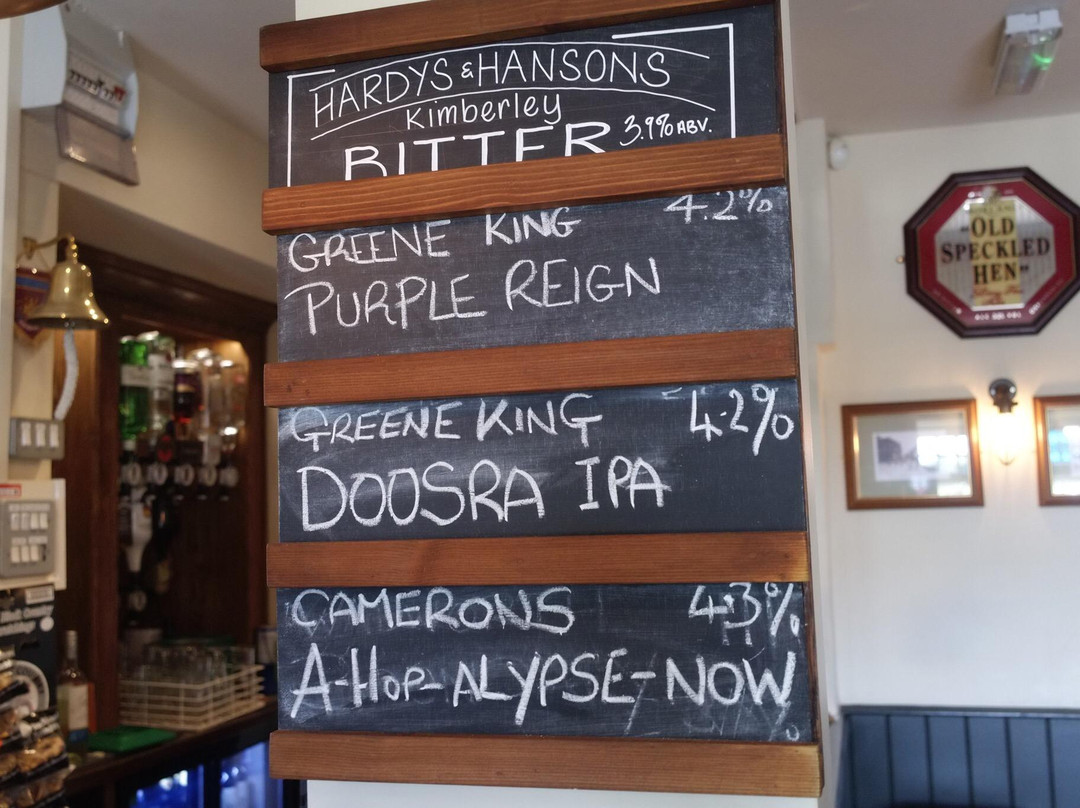 HARDYS & HANSONS
Kimberley
BITTER 3.9% ABV.
GREENE KING 4.2%
PURPLE REIGN
GREENE KING 4.2%
DOOSRA IPA
CAMERONS 4.3%
A-HOP-ALYPSE-NOW
"OLD
SPECKLED
HEN"